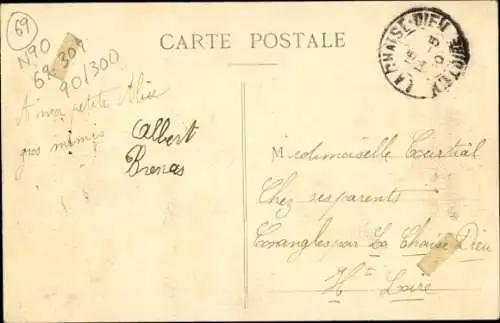 69
N90
69-309
901300
CARTE POSTALE
LA CHAISE-DIEU
A ma petite Alice
gros mimis
Albert
Brenas
Medimoiselle Courtial
Chez ses parents
Connangles par La Chaise Dieu
Hte Loire